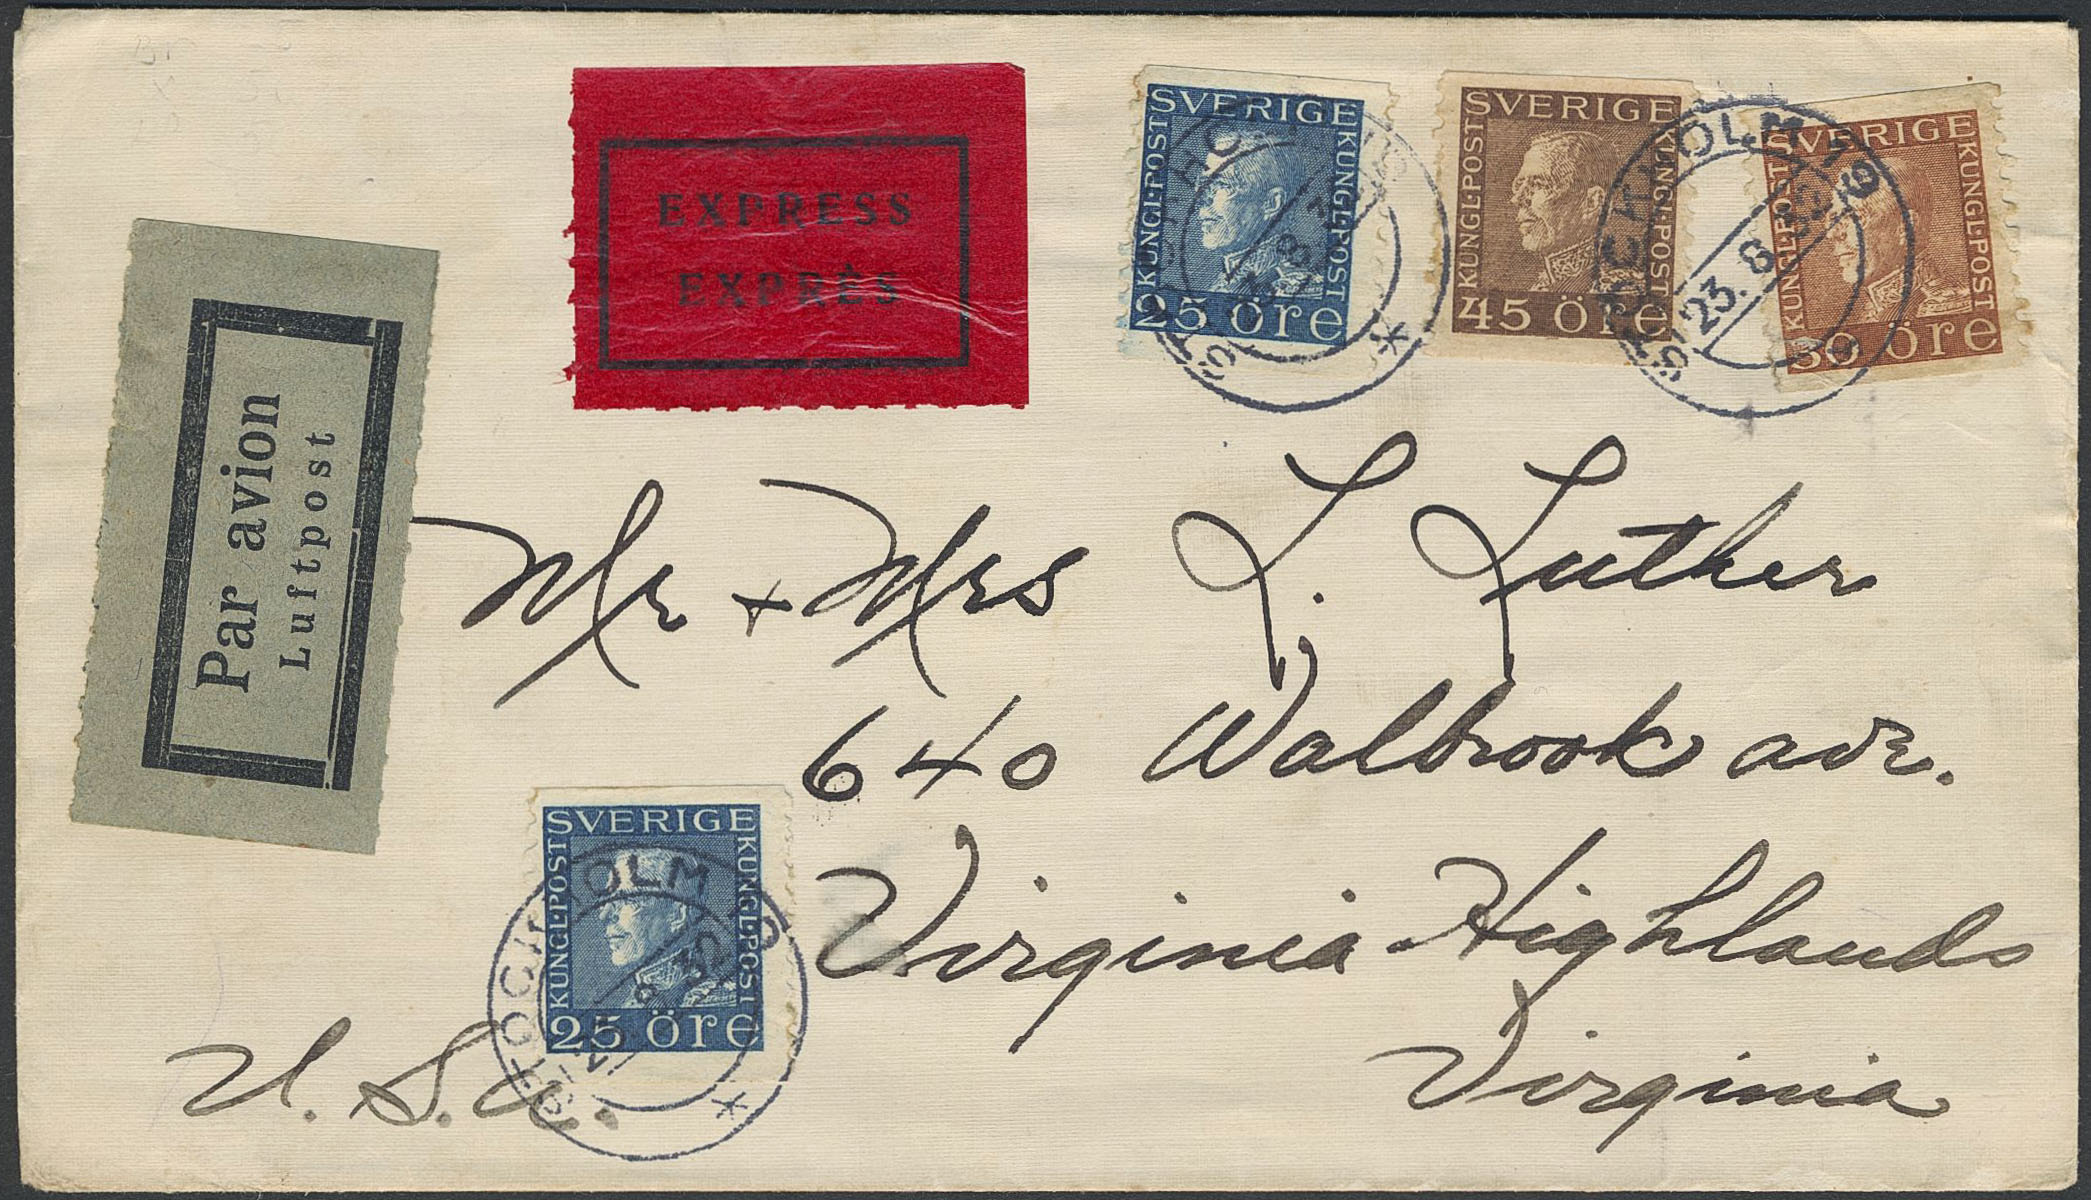 EXPRESS
EXPRÈS
SVERIGE
KUNGL·POST
KUNGL·POST
25 öre
SVERIGE
KUNGL·POST
KUNGL·POST
45 öre
SVERIGE
KUNGL·POST
KUNGL·POST
30 öre
STOCKHOLM 19
23. 8. 32
Par avion
Luftpost
Mr + Mrs L. Luther
640 Walbrook ave.
Virginia Highlands
Virginia
U.S.a.
SVERIGE
KUNGL·POST
KUNGL·POST
25 öre
STOCKHOLM